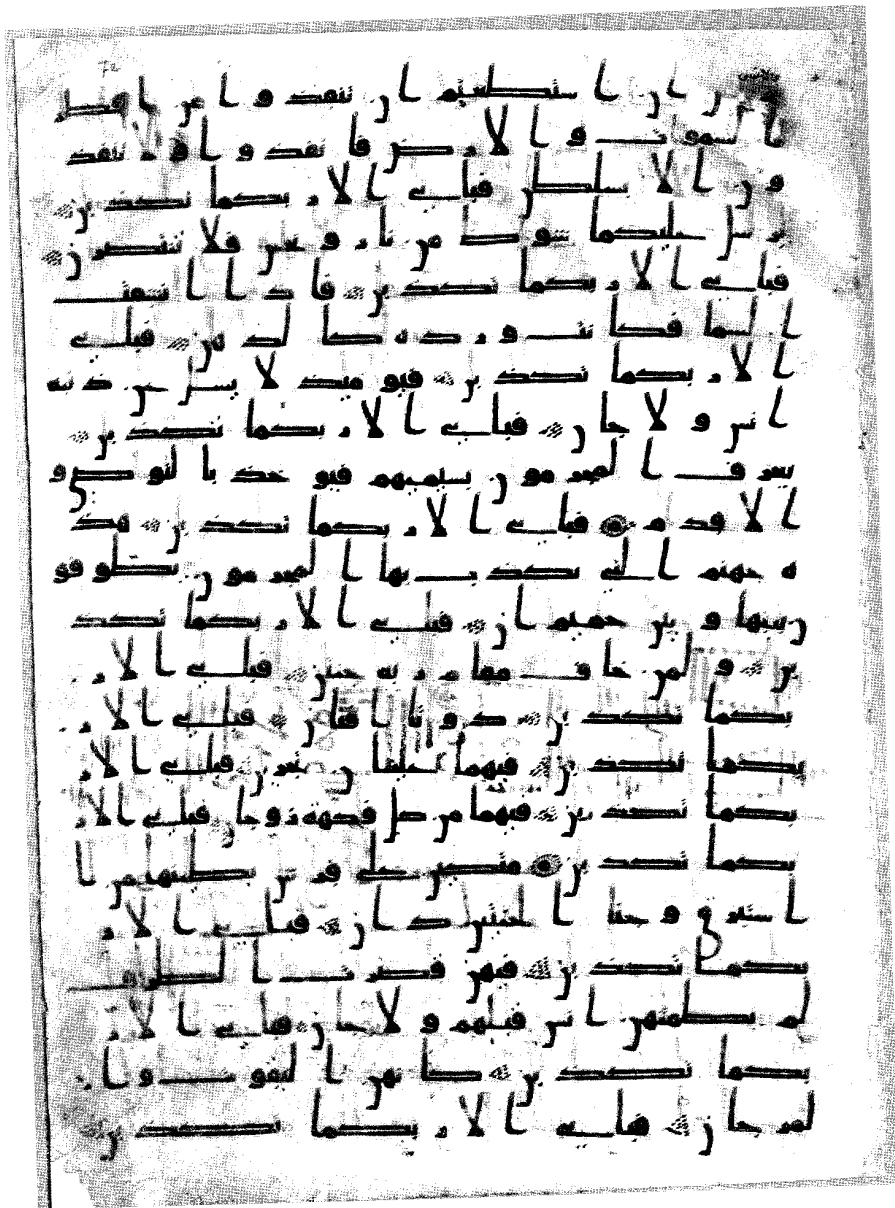 ان استطعتم ان تنفذوا من اقطر
السموت و الارض فانفذوا لا تنفذ
ون الا بسلطن فباي الا ربكما تكذبن
يرسل عليكما شوظ من نار و نحس فلا تنتصرن
فباي الا ربكما تكذبن فاذا انشقت
السما فكانت وردة كالدهن فباي
الا ربكما تكذبن فيومئذ لا يسل عن ذنبه
انس و لا جان فباي الا ربكما تكذبن
يعرف المجرمون بسيمهم فيوخذ بالنوصي و
الاقدم فباي الا ربكما تكذبن هذ
ه جهنم التي يكذب بها المجرمون يطوفو
ن بينها و بين حميم ان فباي الا ربكما تكذ
بن و لمن خاف مقام ربه جنتن فباي الا ر
بكما تكذبن ذوتا افنان فباي الا ر
بكما تكذبن فيهما عينان تجرين فباي الا ر
بكما تكذبن فيهما من كل فكهة زوجان فباي الا ر
بكما تكذبن متكين علي فرش بطينها من ا
استبرق و جنا الجنتين دان فباي الا ر
بكما تكذبن فيهن قصرت الطرف
لم يطمثهن انس قبلهم و لا جان فباي الا ر
بكما تكذبن كانهن اليقوت و ا
لمرجان فباي الا ربكما تكذبن